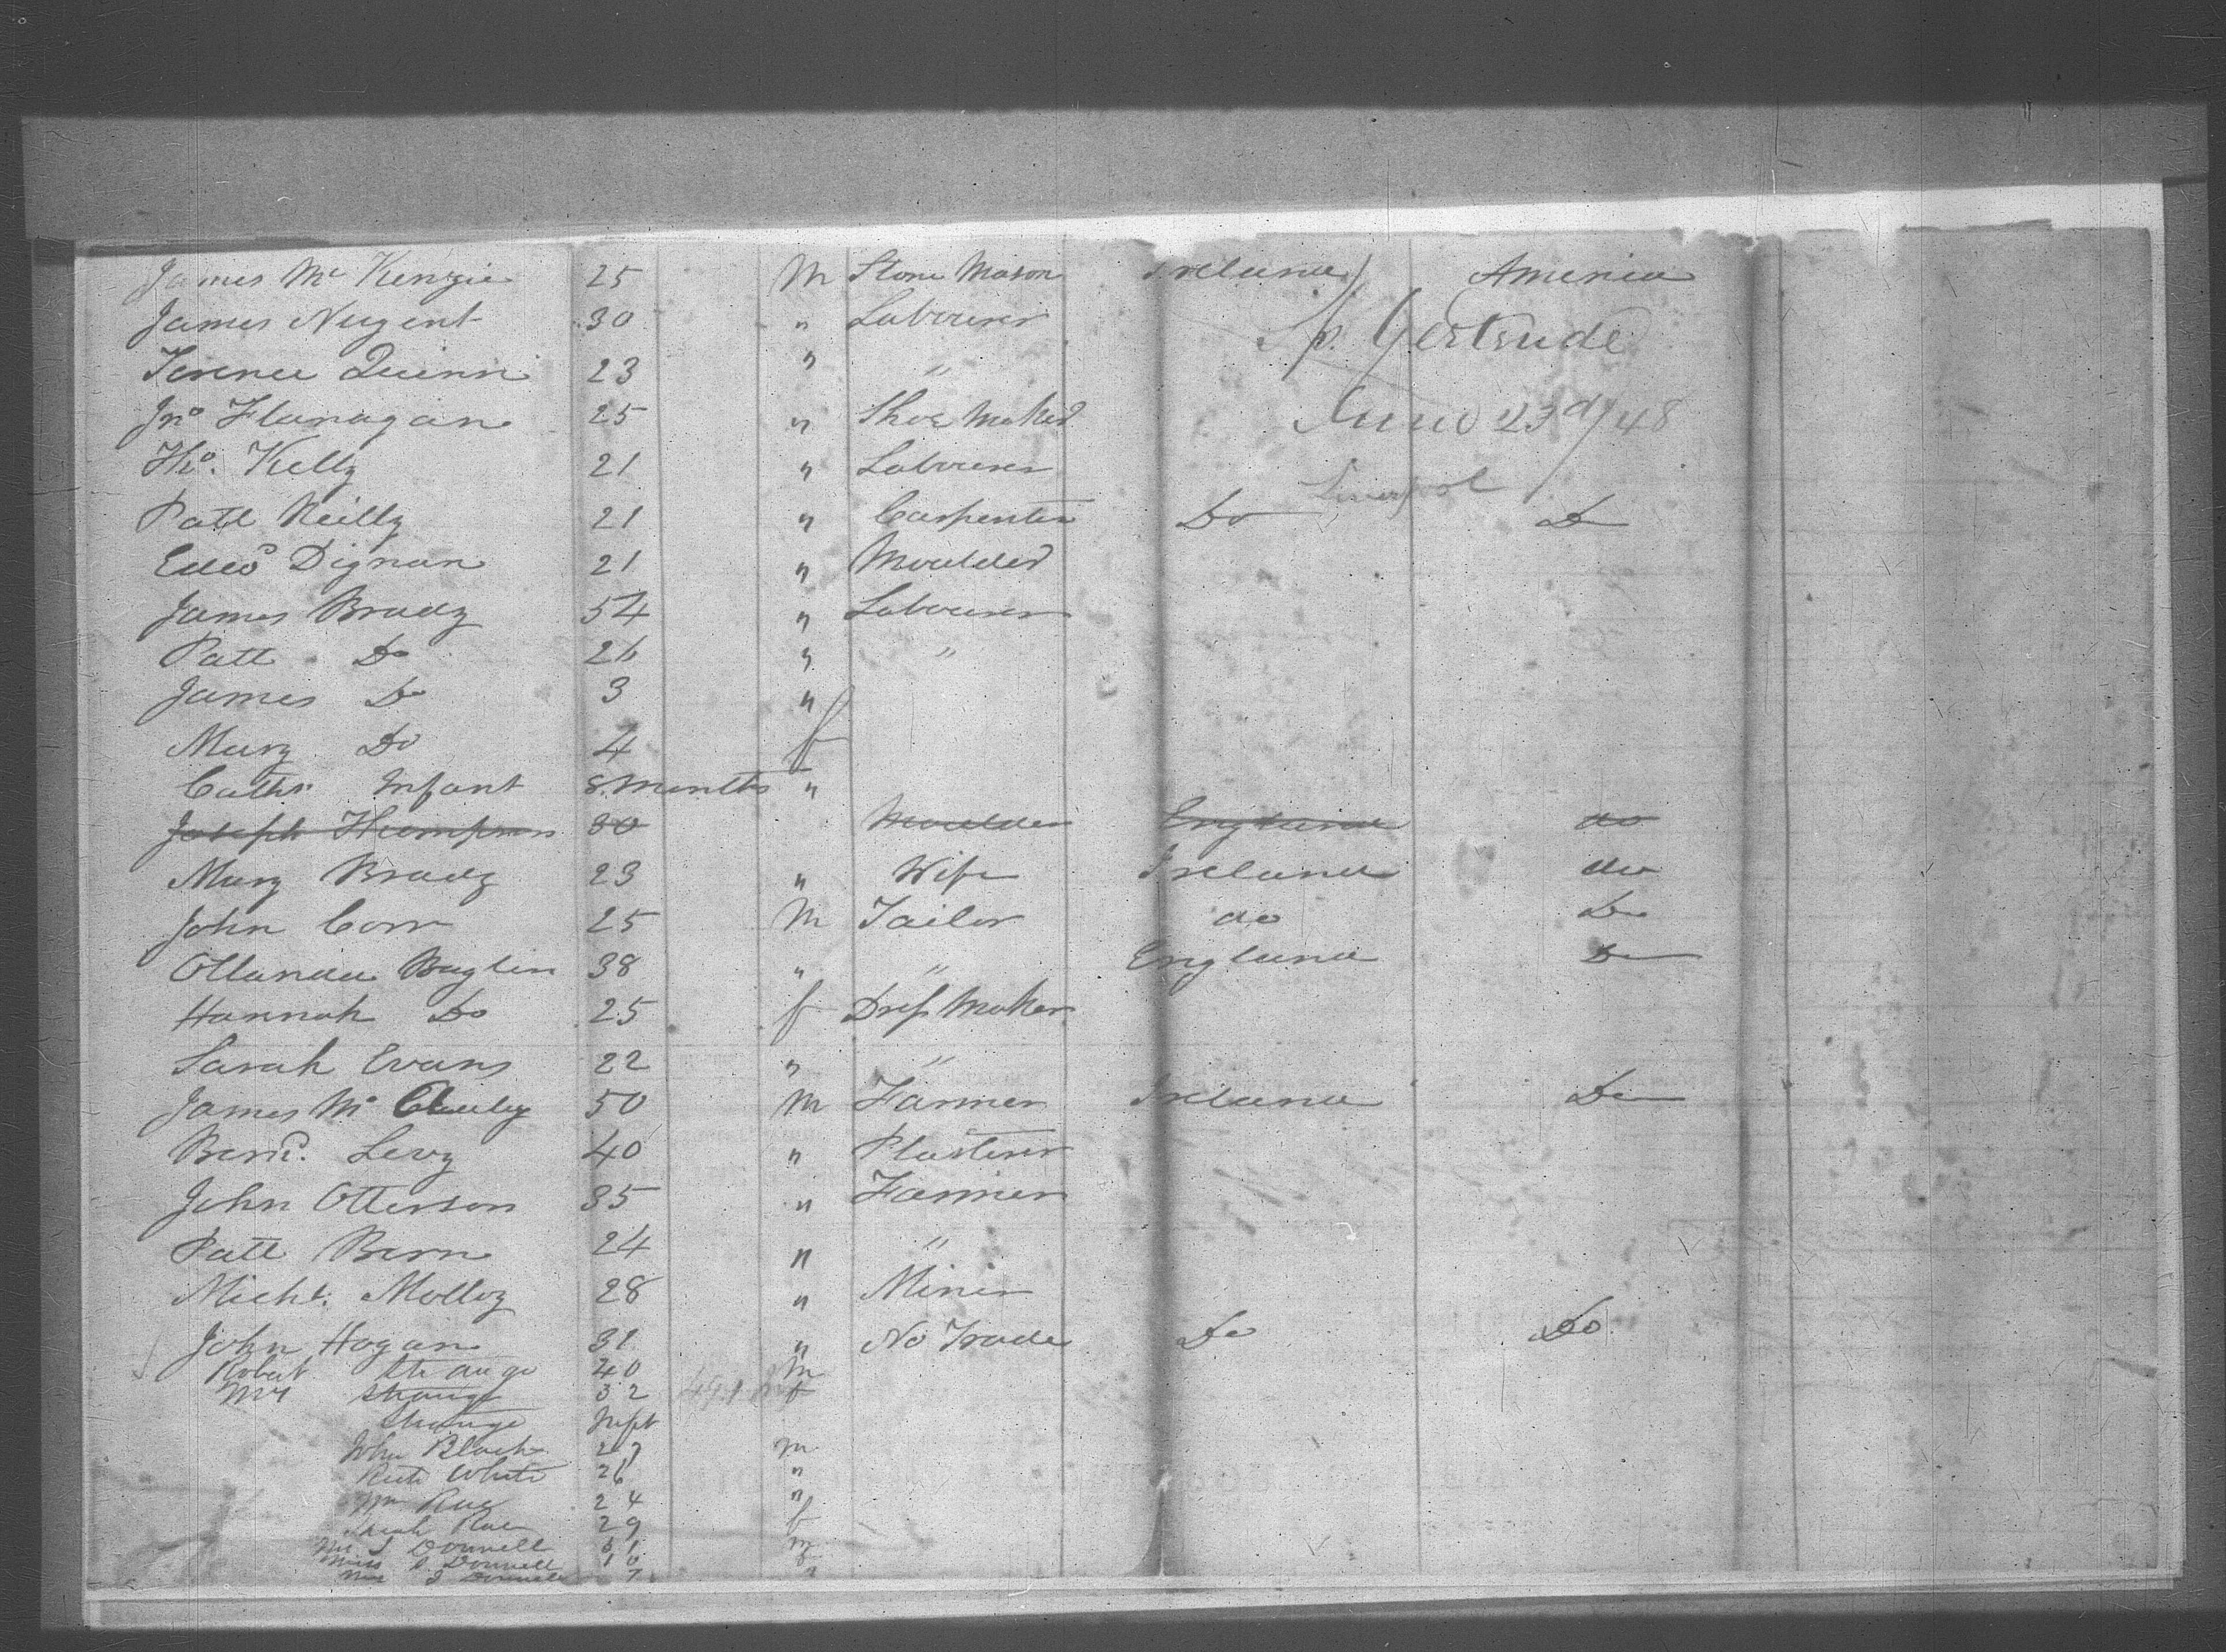 James Mc Kenzie 25 M Stone Mason Ireland America
James Nugent 30 " Labourer
Sp. Gertrude
Terence Quinn 23 " "
Jno Flanagan 25 " Shoe Maker
June 23d/48
Tho. Kelly 21 " Labourer
Liverpool
Patt Reilly 21 " Carpenter Do Do
Edwd Dignan 21 " Moulder
James Brady 54 " Labourer
Patt Do 26 " "
James Do 3 "
Mary Do 4 f
Cathr. Infant 8 Months "
Joseph Thompson 30 Moulder England do
Mary Brady 23 " Wife Ireland do
John Corr 25 M Tailor do Do
38 " " England Do
Hannah Do 25 f Dress Maker
Sarah Evans 22 " "
James Mc 50 M Farmer Ireland Do
Bernd. Levy 40 " Plasterer
John Otterson 35 " Farmer
Patt Bern 24 " "
Michl. Molloy 28 " Miner
John Hogan 31 " No Trade Do Do
Robert Strange 40 m
Mrs Strange 32 f
Strange Inft
John Black 27 m
White 26 "
Wm Rae 24 "
Sarah Rae 29 f
Donnell
Miss Donnell 10
Donnell 7 "